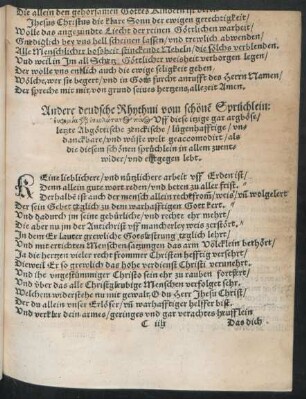 Die allein den gehorsamen Gottes Kindern ist bereit.
Jhesus Christus die klare Sonn der ewigen gerechtigkeit/
Wolle das angezündte Liecht der reinen Göttlichen warheit/
Gnediglich bey vns hell scheinen lassen/ vnd trewlich abwenden/
Alle Menschlicher bosheit stinckende Nebeln/ die solchs verblenden,
Vnd weil in Jm all Schetz Göttlicher weisheit verborgen legen/
Der wolle vns entlich auch die ewige seligkeit geben,
Wölchs/ wer sis begert/ vnd in Gott fürcht anrufft des Herrn Namen/
Der spreche mit mir von grund seines hertzens/ allezeit Amen.
Andere deudsche Rhythmi vom schöne Sprüchlein:
Vff diese itzige gar argböse/
letzte Abgöttische zenckische / lügenhafftige / vn-
danckbare/ vnd wüste welt geaccomodirt/ als
die diesem schönen sprüchlein in allem zuent-
wider/ vnd entgegen lebt.
KEine lieblichere/ vnd nützlichere arbeit vff Erden ist/
Denn allein gute wort reden/ vnd beten zu aller frist.
Derhalbē ist auch der mensch allein recht from/ weis/ vñ wolgelert
Der sein Gebet teglich zu dem warhafftigen Gott kert.
Vnd dadurch jm seine gebürliche/ vnd rechte ehr mehrt/
Die aber nu im der Antichrist vff mancherley weis zerstört/
In dem Er lauter grewliche Gotteslesterung teglich lehrt/
Vnd mit ertichten Menschensatzungen das arm Völcklein bethört/
Ja die hertzen vieler recht frommer Christen hefftig versehrt/
Dieweil Er so grewlich das hohe verdienst Christi verunehrt.
Vnd ihn vngestümmiger Christo sein ehr zu rauben fortfert/
Vnd vber das alle Christgleubige Menschen verfolget sehr.
Welchem widerstehe nu mit gewalt/ O du Herr Jhesu Christ/
Der du allein vnser Erlöser/ vñ warhafftiger helffer bist.
Vnd verklär dein armes/ geringes vnd gar verachtes heufflein
C iij Das dich